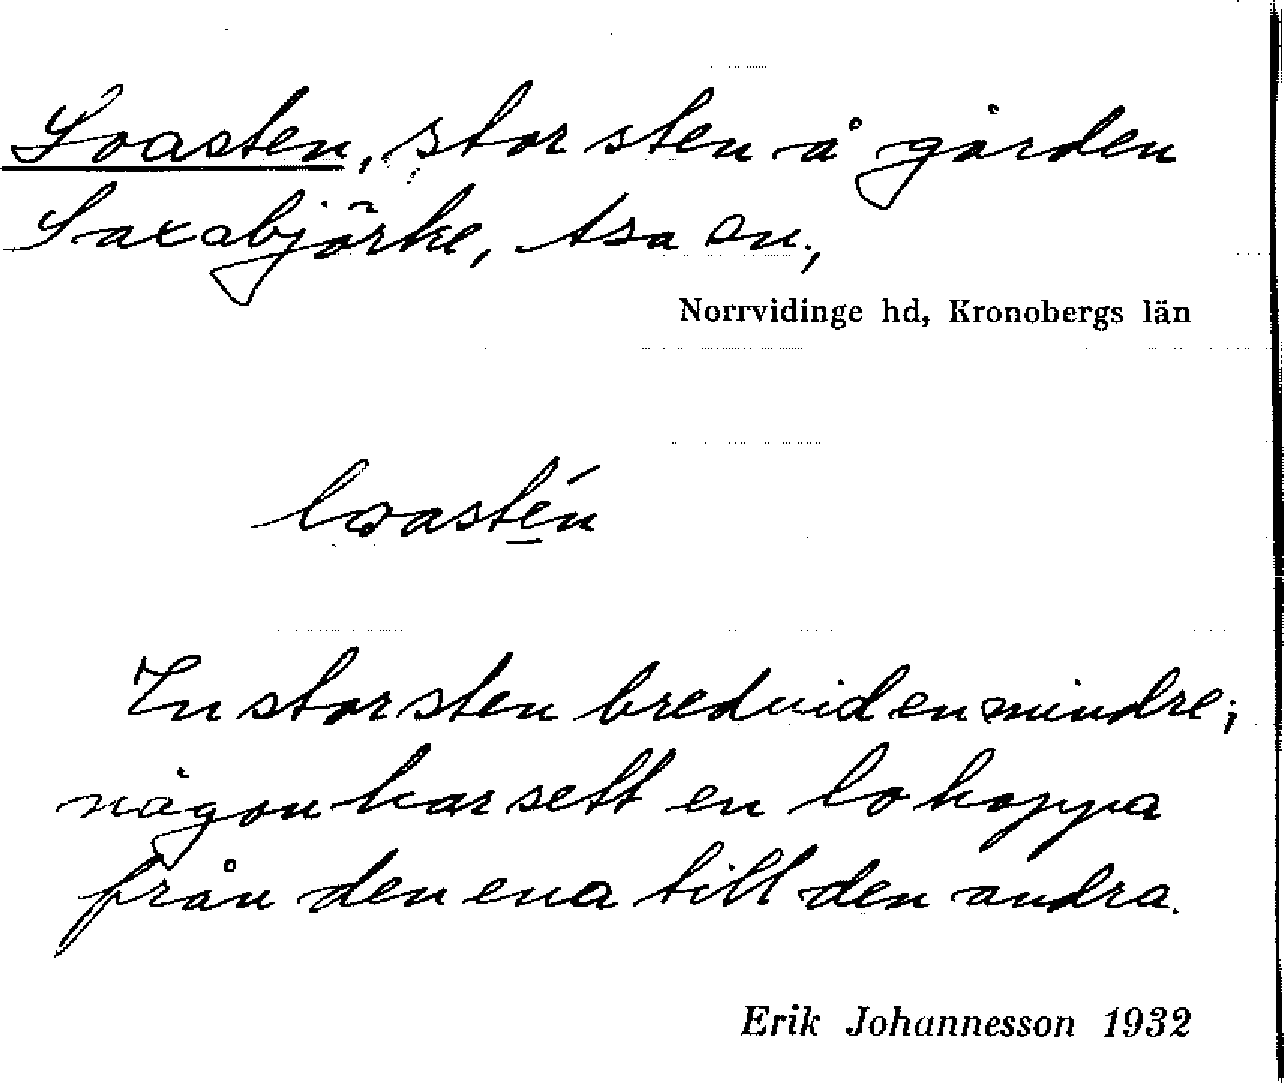 Loasten, stor sten å gården
Saxabjörke, Asa sn,
Norrvidinge hd, Kronobergs län
loastén
En stor sten bredvid en mindre;
någon har sett en lo hoppa
från den ena till den andra.
Erik Johannesson 1932